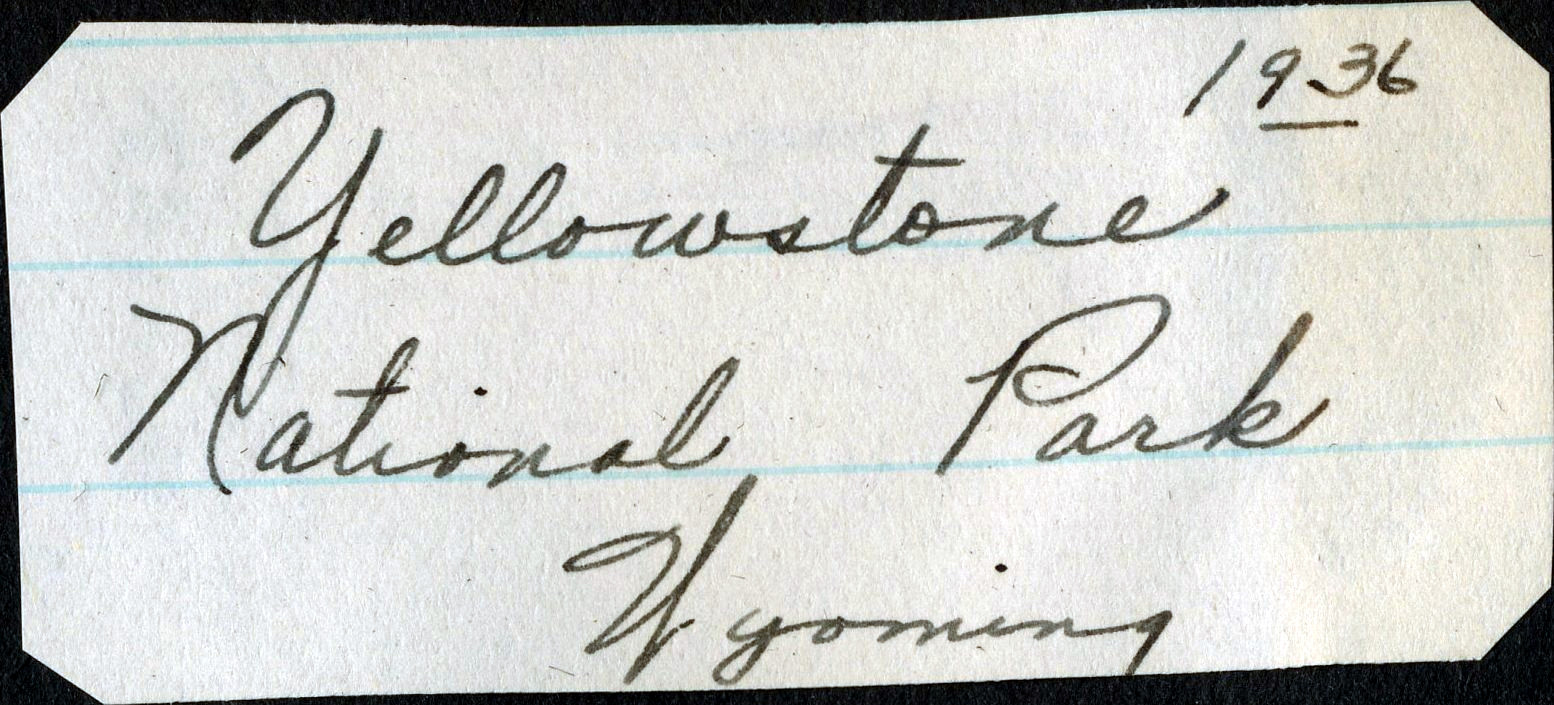 1936
Yellowstone
National Park
Wyoming